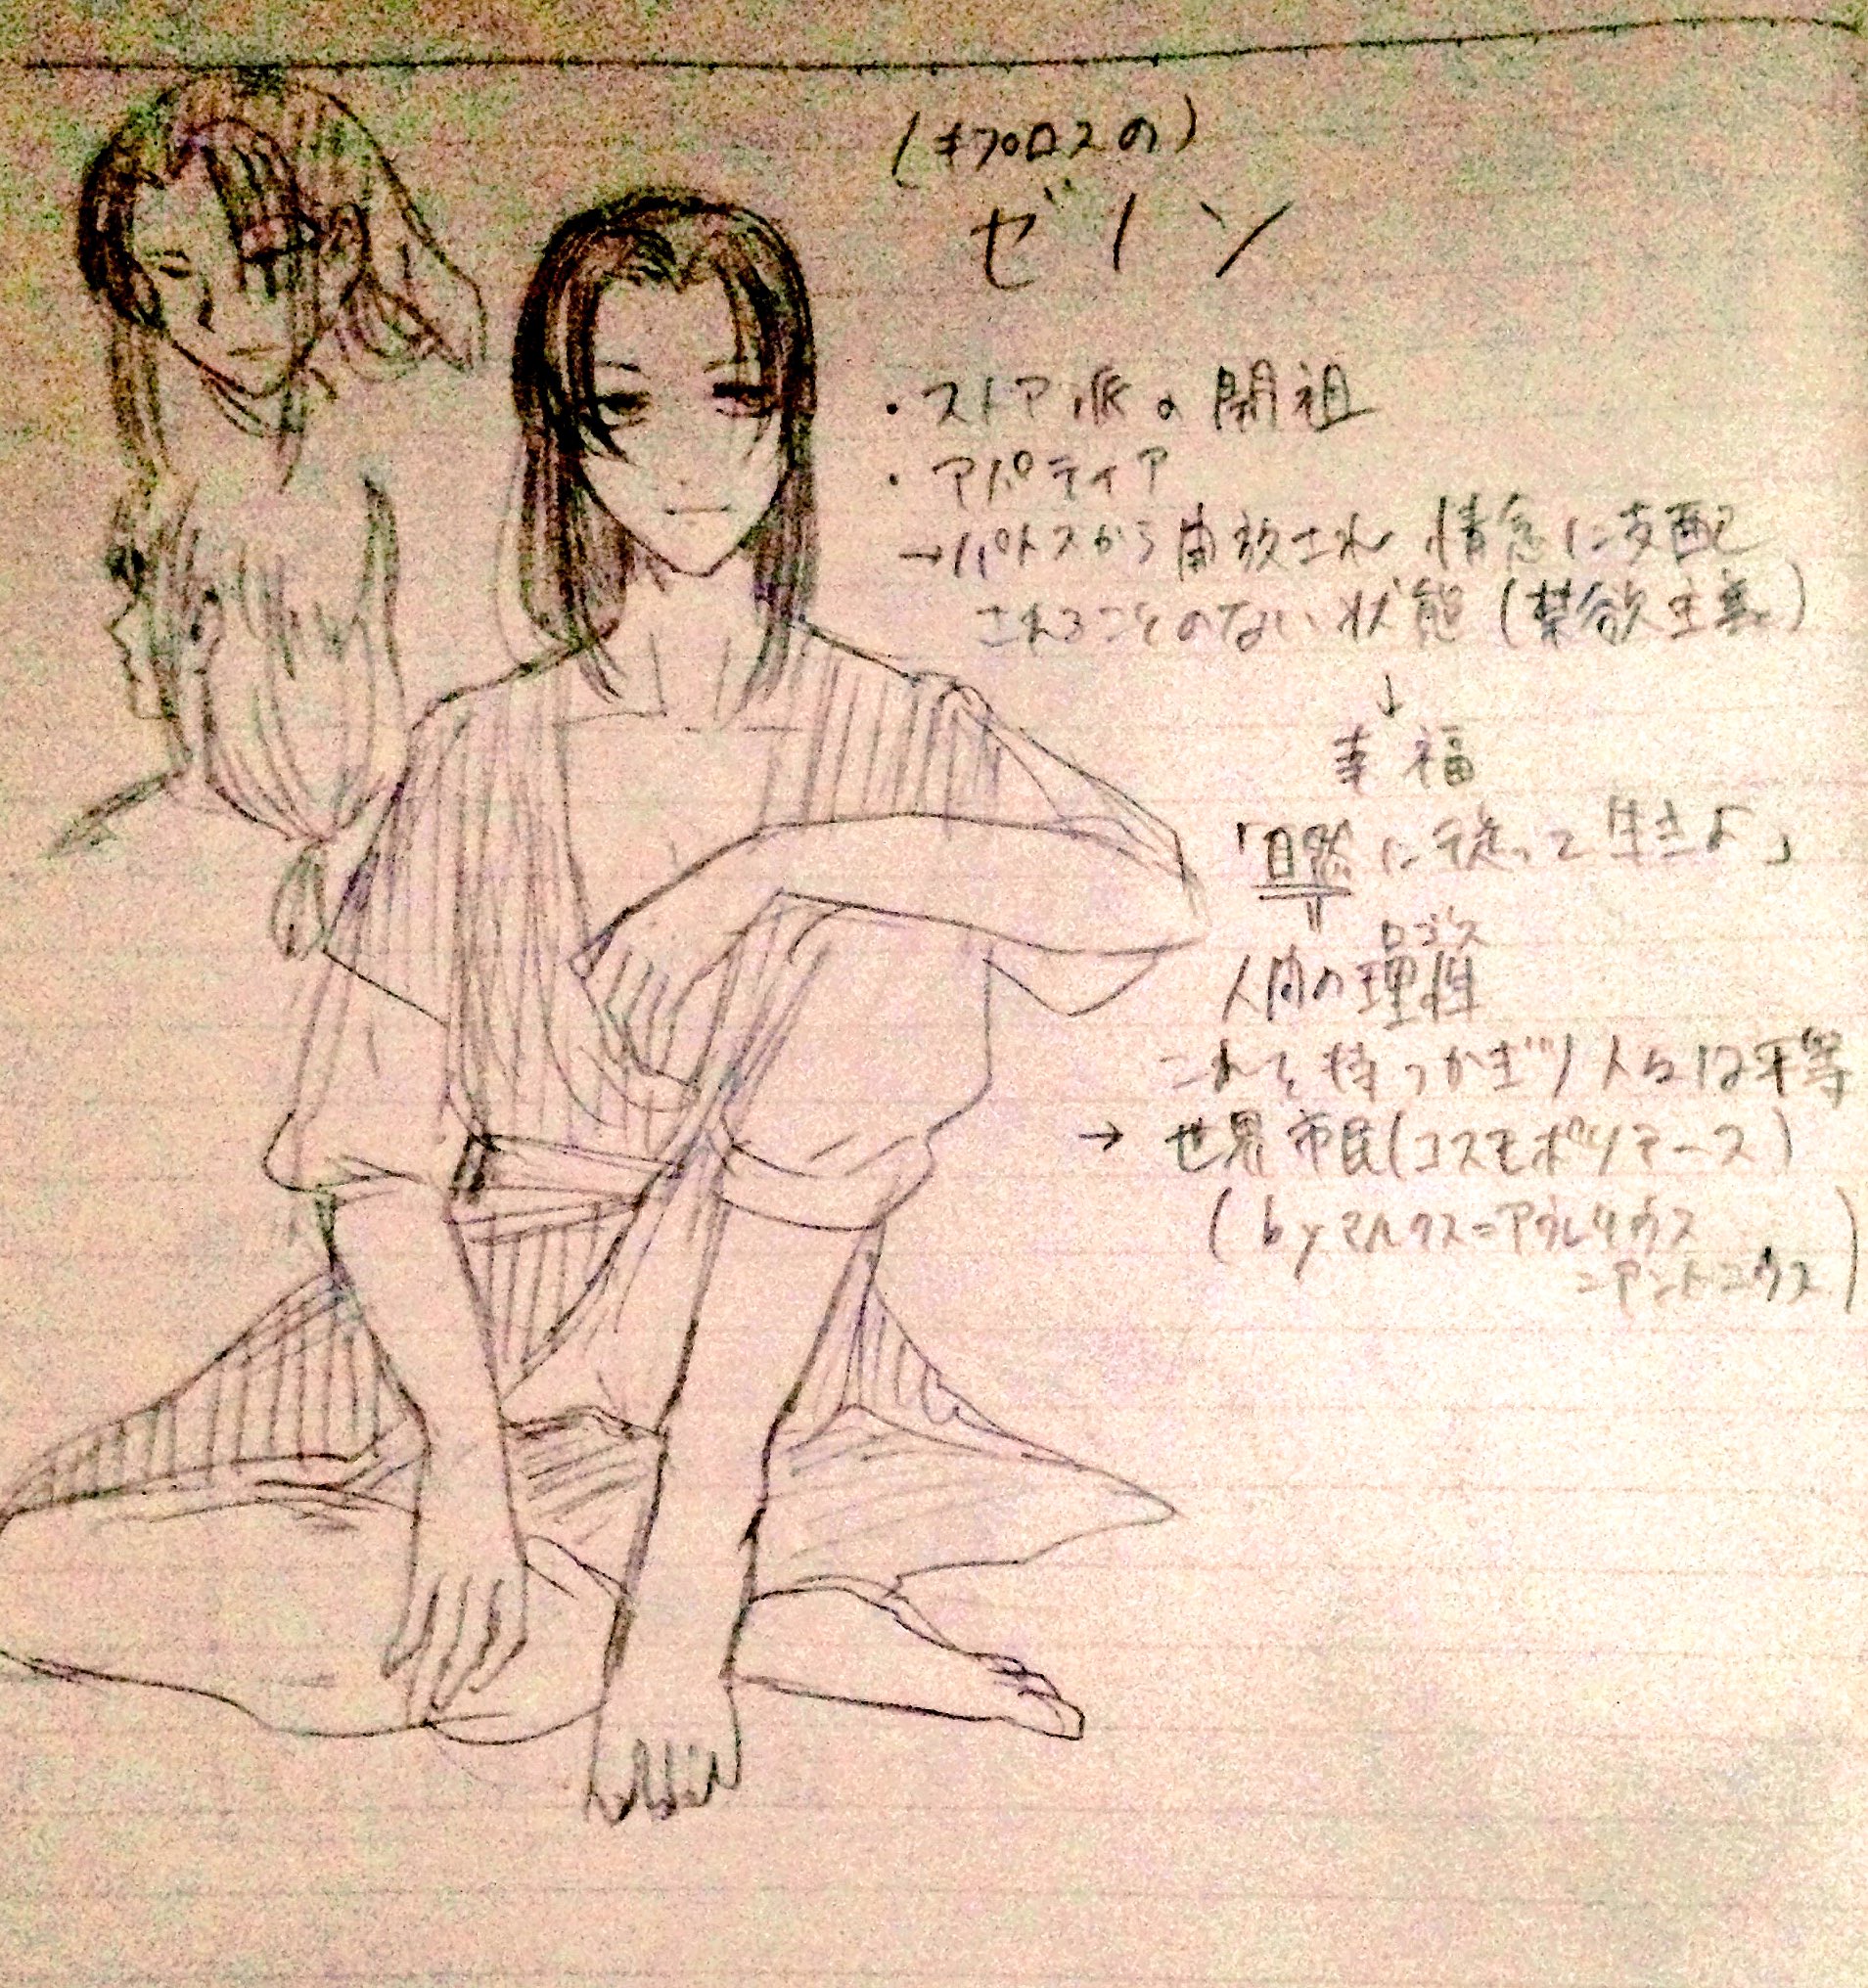 (キプロスの)
ゼノン
・ストア派の開祖
・アパティア
→パトスから開放され 情念に支配
されることのない状態(禁欲主義)
↓
幸福
「自然に従って生きよ」
ロゴス
人間の理性
これを持つかぎり人々は平等
→ 世界市民(コスモポリテース)
(byマルクス=アウレリウス
=アントニウス)